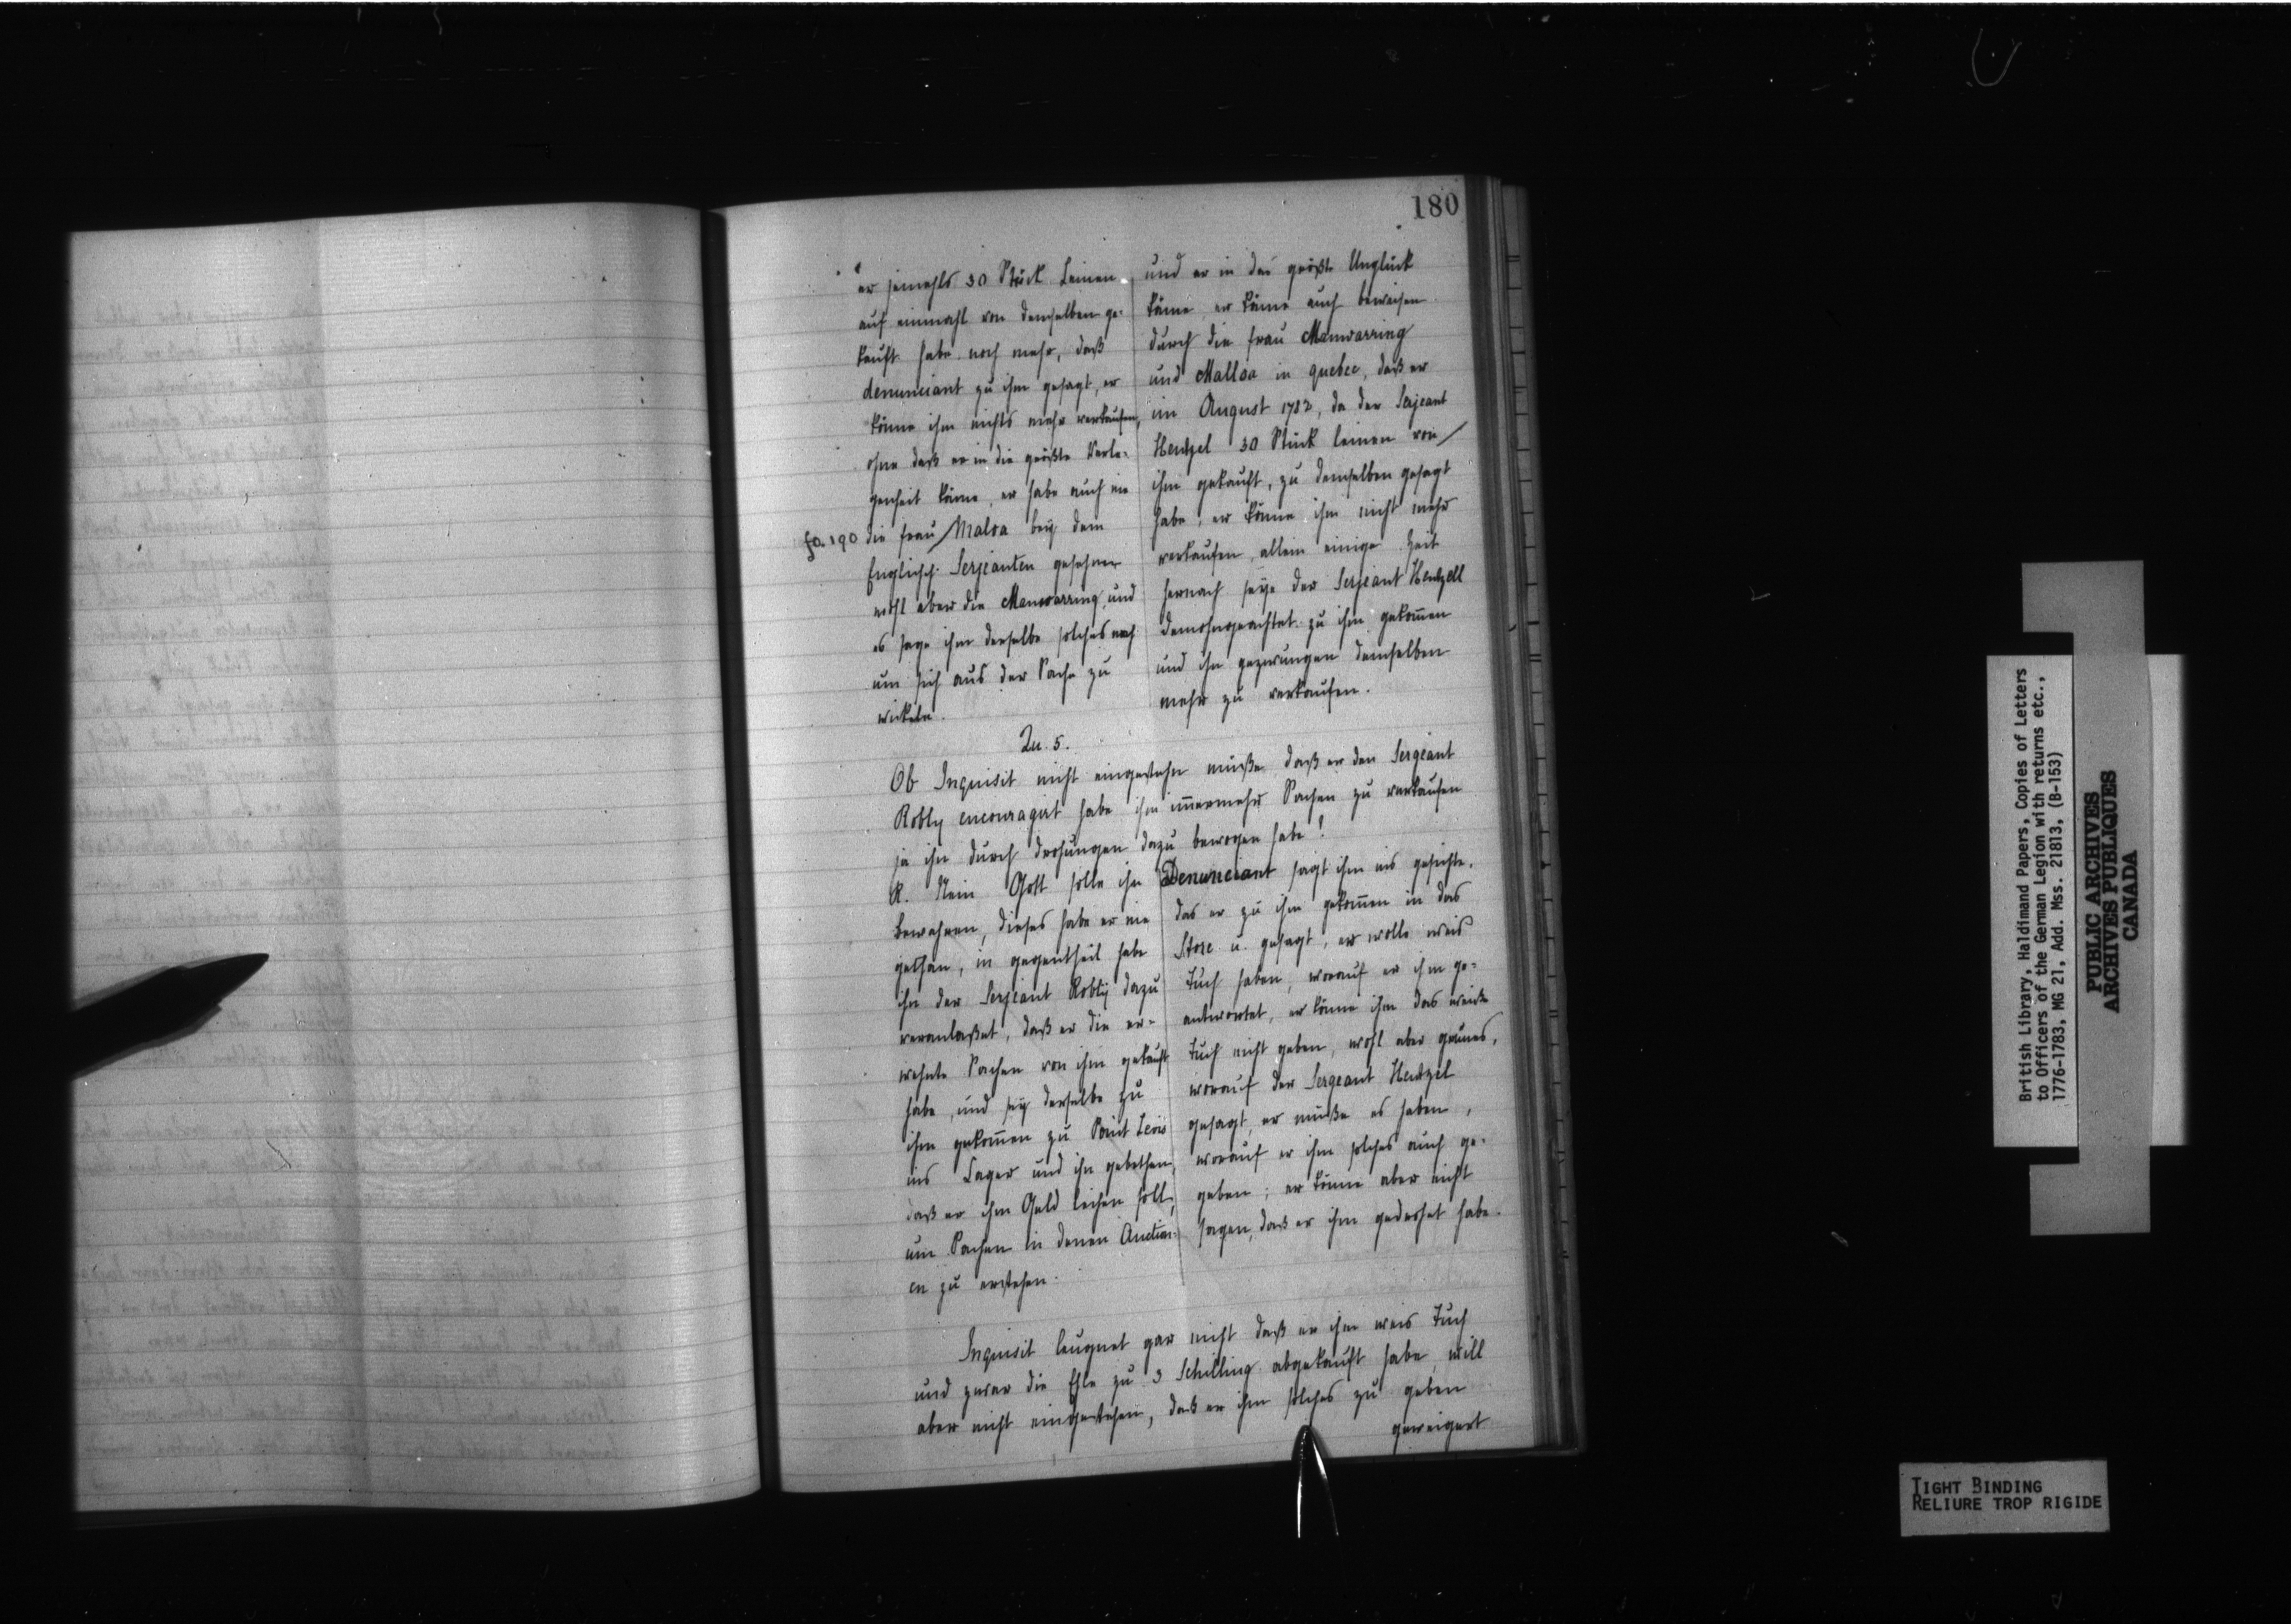 180
er jemahls 30 Stück Leinen
auf einmahl von demselben ge-
kauft habe noch mehr, daß
denunciant zu ihm gesagt, er
könne ihm nichts mehr verkaufen,
ohne daß er in die größte Verle-
genheit käme, er habe auch nie
fo. 190 die frau Malsa beÿ dem
Englisch. Serjeanten gesehen
wohl aber die Manwarring, und
es sage ihm derselbe solches nach
um sich aus der Sache zu
wickeln.
und er in das größte Unglück
käme er könne auch beweisen
durch die frau Manwarring
und Mallsa in quebec, daß er
im August 1782, da der Serjeant
Hentzel 30 Stück leinen von
ihm gekauft, zu demselben gesagt
habe, er könne ihm nicht mehr
verkaufen, allein einige Zeit
hernach seÿe der Serjeant Hentzell
demohngeachtet zu ihm gekom̄en
und ihn gezwungen demselben
mehr zu verkaufen.
Qu. 5.
Ob Inquisit nicht eingestehn müße daß er den Sergeant
Robly encouragirt habe ihm im̄ermehr Sachen zu verkaufen
ja ihn durch drohungen dazu bewogen habe?
R. Nein Gott solle ihn
bewahren, dieses habe er nie
gethan, in gegentheil habe
ihn der Serjeant Roblÿ dazu
veranlaßet, daß er die er-
wehnte Sachen von ihm gekauft
habe, und seÿ derselbe zu
ihm gekom̄en zu Point Levis
ins Lager und ihn gebethen,
daß er ihm Geld leihen soll,
um Sachen in denen Auction-
en zu erstehen.
Denunciant sagt ihm ins gesichte.
das er zu ihm gekom̄en in das
Store u. gesagt, er wolle weis
Tuch haben, worauf er ihm ge-
antwortet, er könne ihm das weiße
Tuch nicht geben, wohl aber grünes,
worauf der Sergeant Hentzel
gesagt, er müße es haben,
worauf er ihm solches auch ge-
geben; er könne aber nicht
sagen, daß er ihm gedrohet habe.
Inquisit leugnet gar nicht daß er ihm weis Tuch
und zwar die Ehle zu 3 Schilling abgekauft habe, will
aber nicht eingestehen, daß er ihm solches zu geben
geweigert
British Library, Haldimand Papers, Copies of Letters
to Officers of the German Legion with returns etc.,
1776-1783, MG 21, Add. Mss. 21813, (B-153)
PUBLIC ARCHIVES
ARCHIVES PUBLIQUES
CANADA
TIGHT BINDING
RELIURE TROP RIGIDE